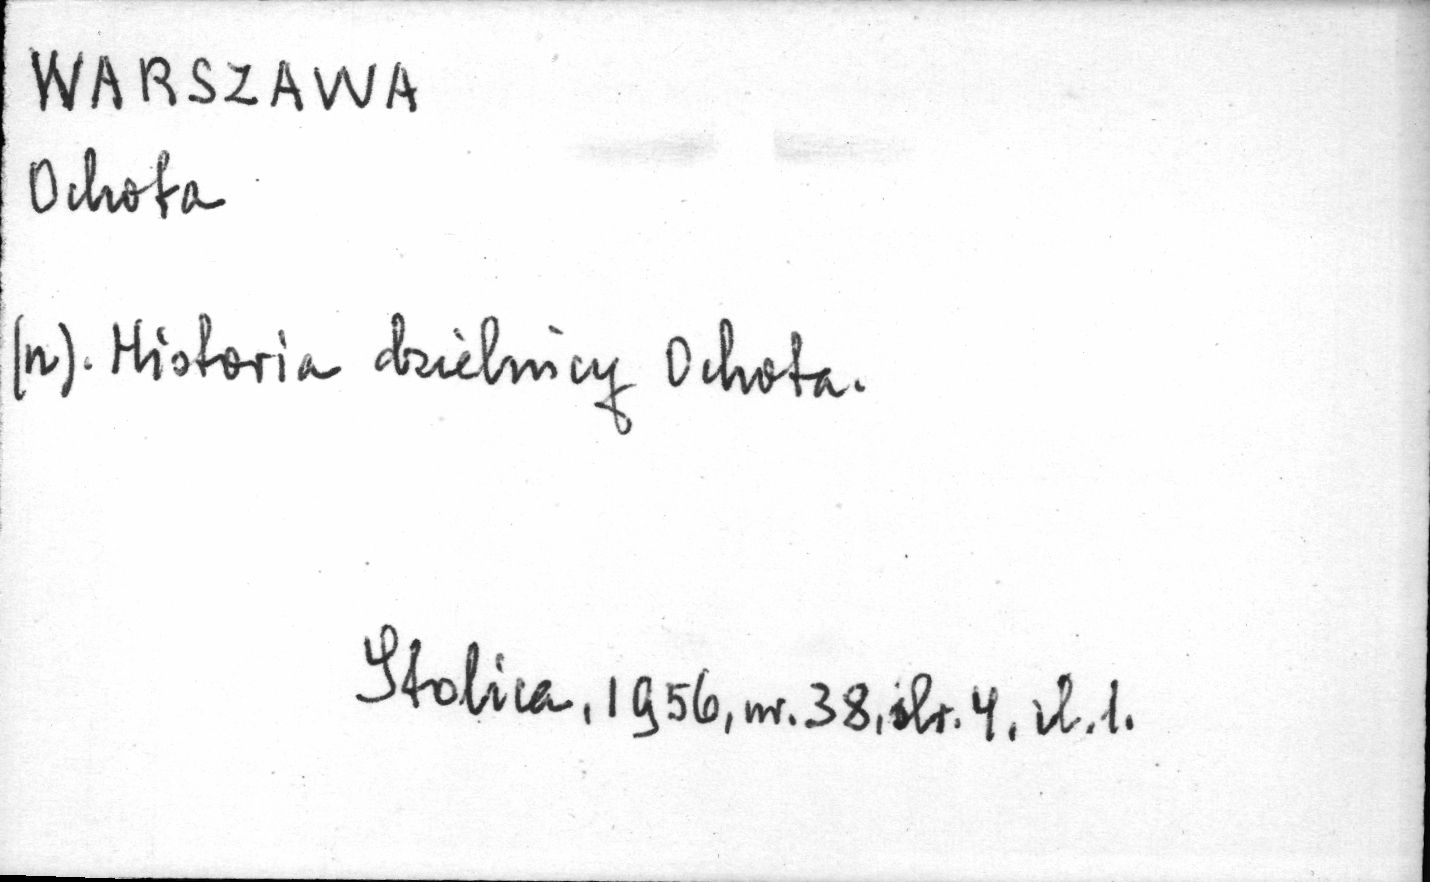 WARSZAWA
Ochota
(n). Historia dzielnicy Ochota.
Stolica, 1956, nr. 38, str. 4, il. 1.